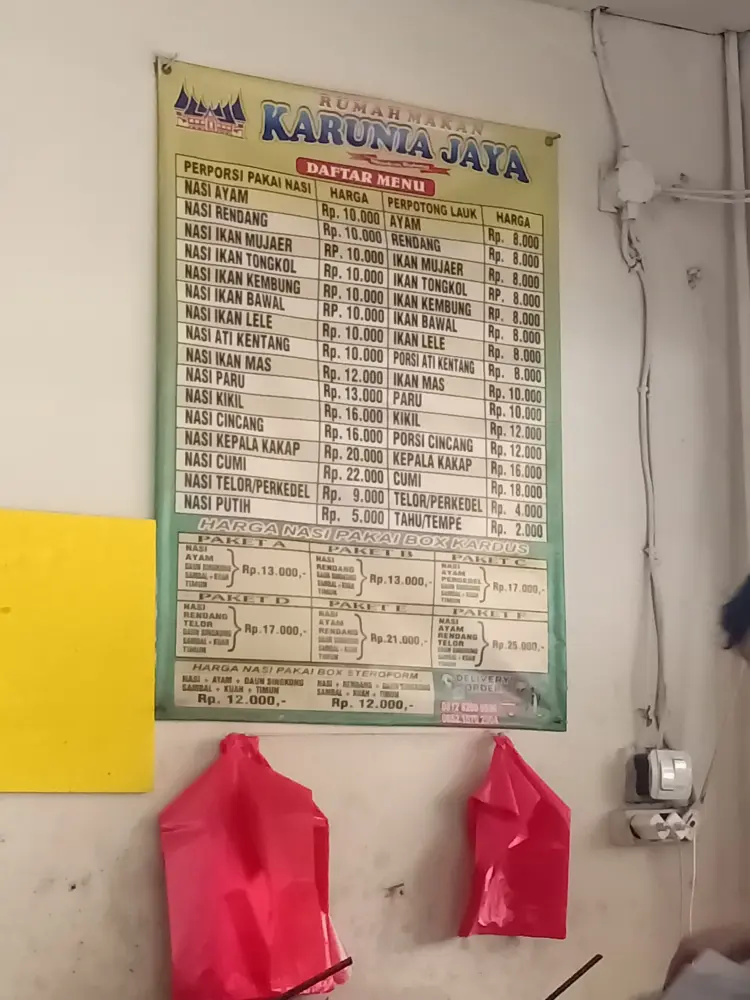 RUMAH MAKAN
KARUNIA JAYA
DAFTAR MENU
PERPORSI PAKAI NASI HARGA PERPOTONG LAUK HARGA
NASI AYAM Rp. 10.000 AYAM Rp. 8.000
NASI RENDANG Rp. 10.000 RENDANG Rp. 8.000
NASI IKAN MUJAER RP. 10.000 IKAN MUJAER Rp. 8.000
NASI IKAN TONGKOL Rp. 10.000 IKAN TONGKOL RP. 8.000
NASI IKAN KEMBUNG Rp. 10.000 IKAN KEMBUNG Rp. 8.000
NASI IKAN BAWAL RP. 10.000 IKAN BAWAL Rp. 8.000
NASI IKAN LELE Rp. 10.000 IKAN LELE Rp. 8.000
NASI ATI KENTANG Rp. 10.000 PORSI ATI KENTANG Rp. 8.000
NASI IKAN MAS Rp. 12.000 IKAN MAS Rp. 10.000
NASI PARU Rp. 13.000 PARU Rp. 10.000
NASI KIKIL Rp. 16.000 KIKIL Rp. 12.000
NASI CINCANG Rp. 16.000 PORSI CINCANG Rp. 12.000
NASI KEPALA KAKAP Rp. 20.000 KEPALA KAKAP Rp. 16.000
NASI CUMI Rp. 22.000 CUMI Rp. 18.000
NASI TELOR/PERKEDEL Rp. 9.000 TELOR/PERKEDEL Rp. 4.000
NASI PUTIH Rp. 5.000 TAHU/TEMPE Rp. 2.000
HARGA NASI PAKAI BOX KARDUS
PAKET A
NASI
AYAM
DAUN SINGKONG
SAMBAL + KUAH
TIMUN
Rp.13.000,-
PAKET B
NASI
RENDANG
DAUN SINGKONG
SAMBAL + KUAH
TIMUN
Rp.13.000,-
PAKET C
NASI
AYAM
PERKEDEL
DAUN SINGKONG
SAMBAL + KUAH
TIMUN
Rp.17.000,-
PAKET D
NASI
RENDANG
TELOR
DAUN SINGKONG
SAMBAL + KUAH
TIMUN
Rp.17.000,-
PAKET E
NASI
AYAM
RENDANG
DAUN SINGKONG
SAMBAL + KUAH
TIMUN
Rp.21.000,-
PAKET F
NASI
AYAM
RENDANG
TELOR
DAUN SINGKONG
SAMBAL + KUAH
TIMUN
Rp.25.000,-
HARGA NASI PAKAI BOX STEROFORM
NASI + AYAM + DAUN SINGKONG
SAMBAL + KUAH + TIMUN
Rp. 12.000,-
NASI + RENDANG + DAUN SINGKONG
SAMBAL + KUAH + TIMUN
Rp. 12.000,-
DELIVERY
ORDER